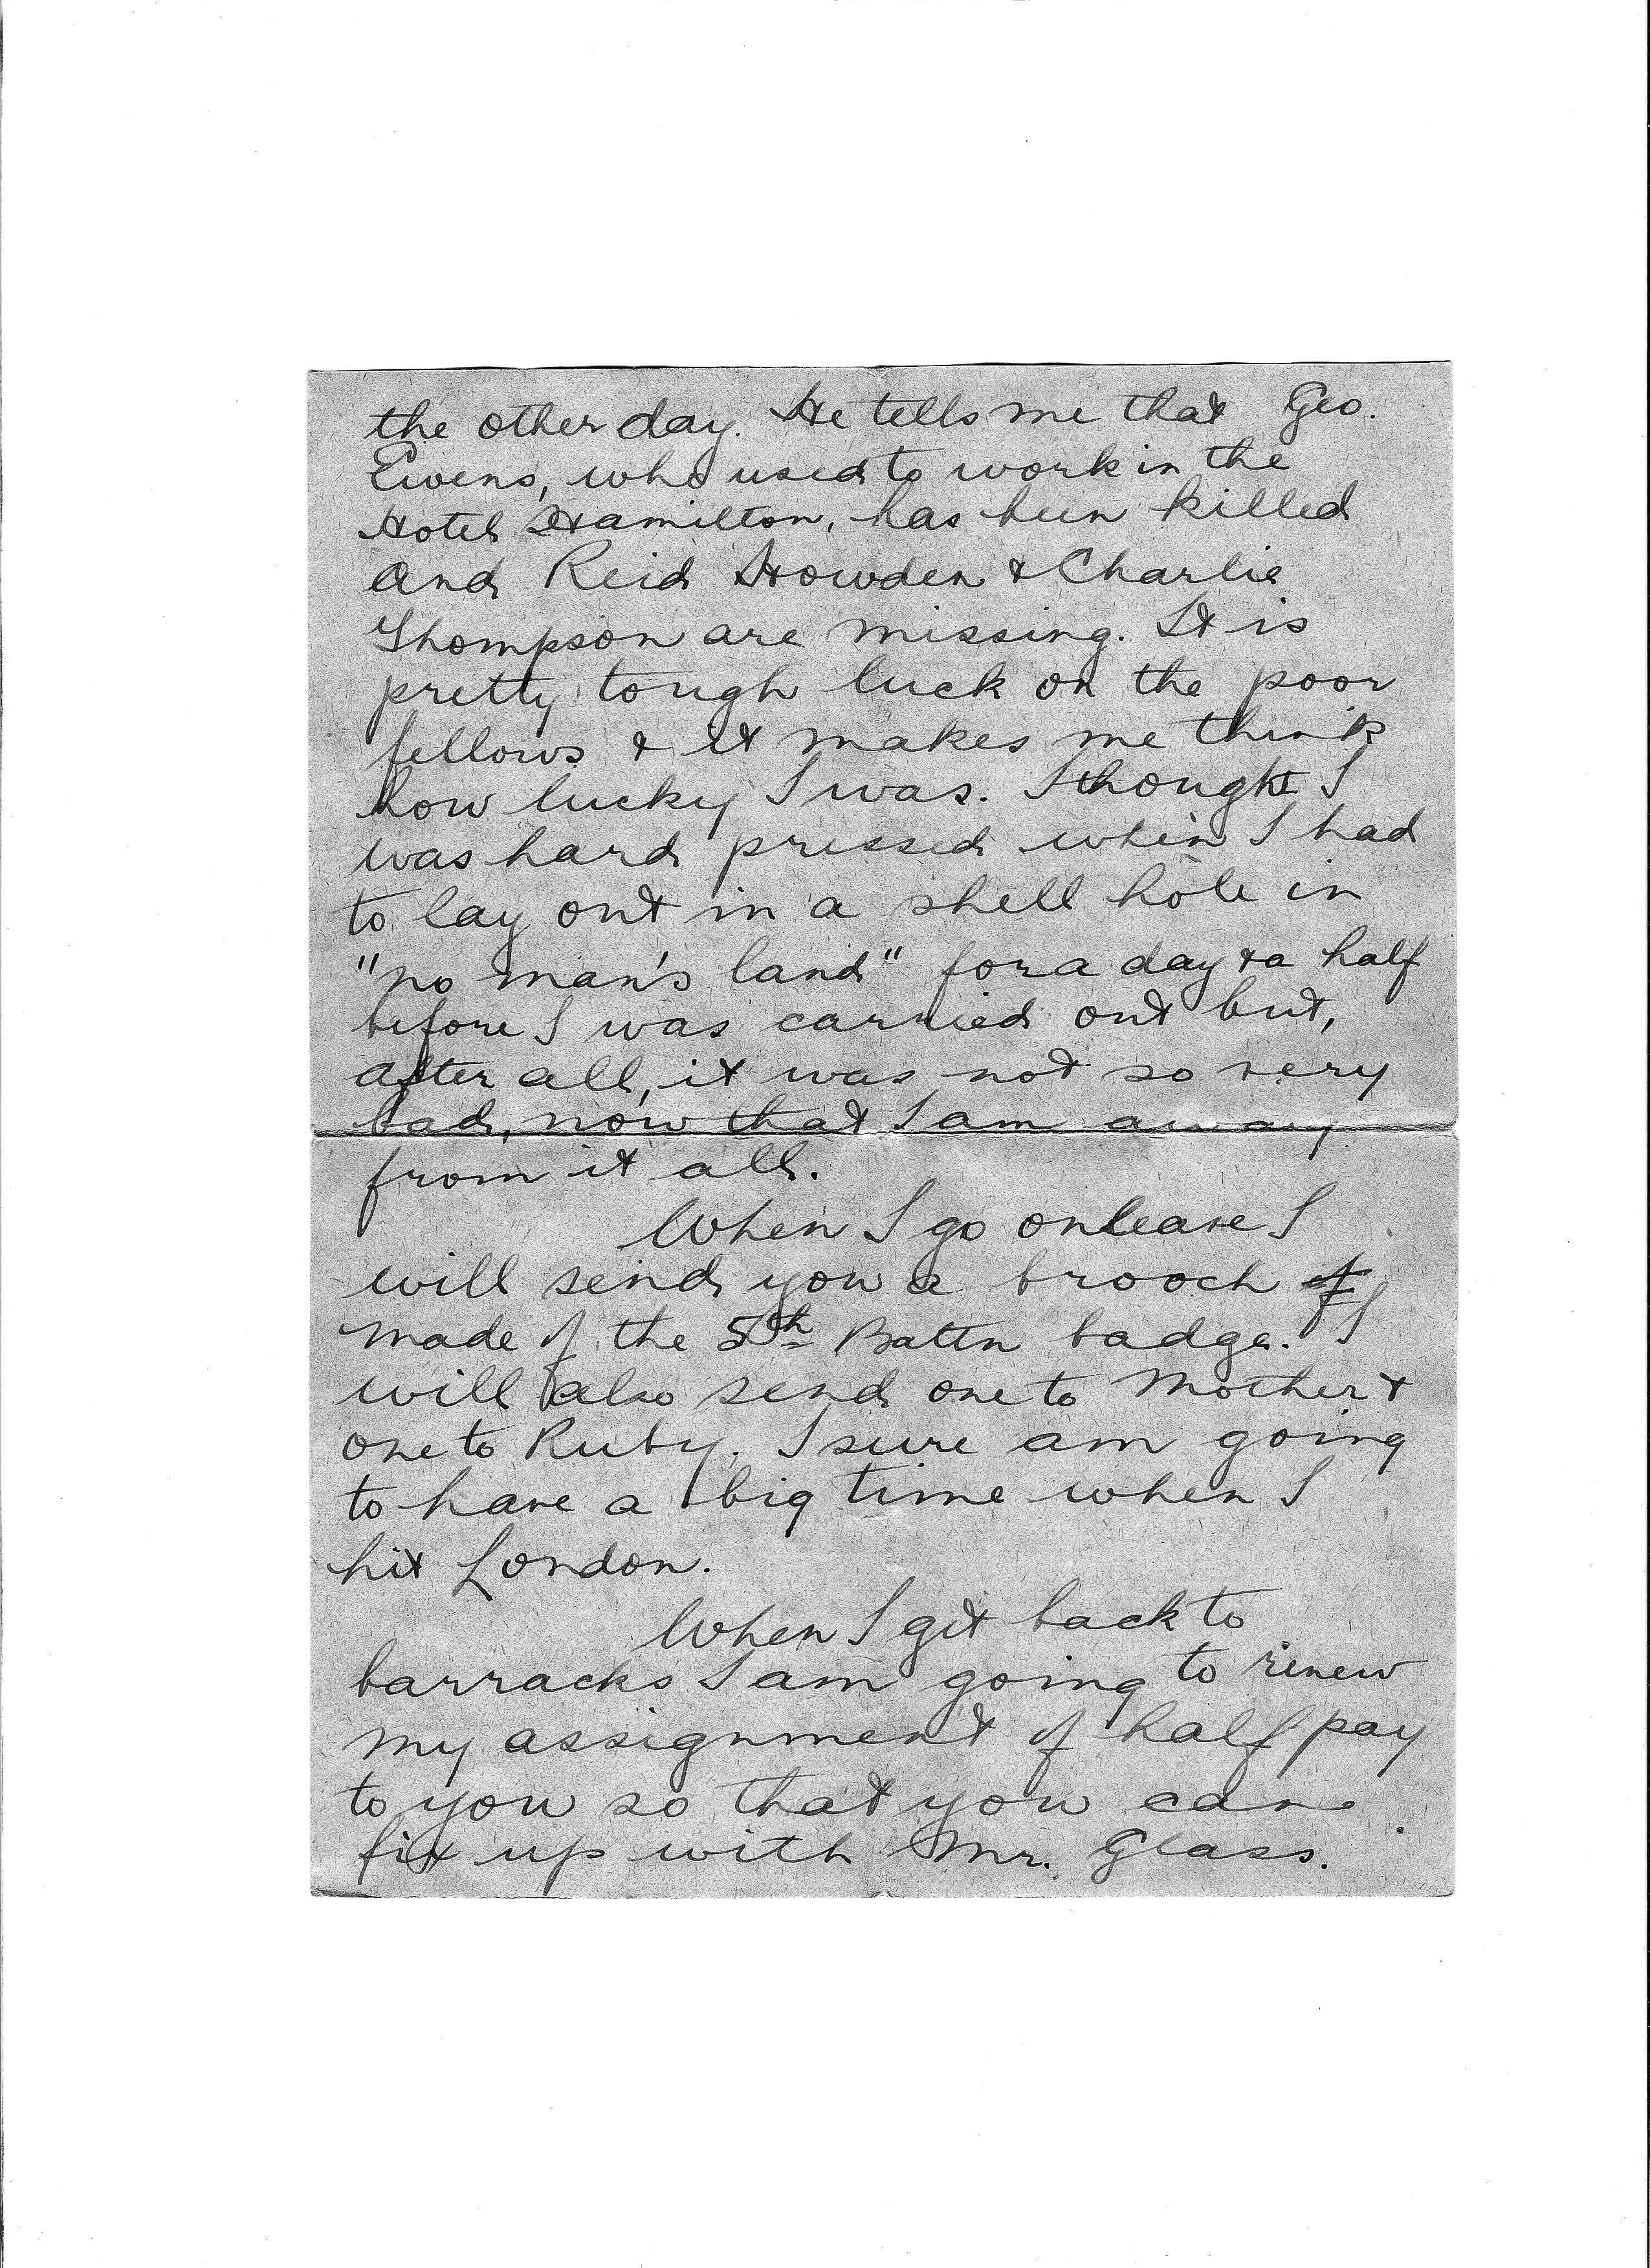 the other day. He tells me that Geo.
Ewens, who used to work in the
Hotel Hamilton, has been killed
and Reid Howden & Charlie
Thompson are missing. It is
pretty tough luck on the poor
fellows & it makes me think
how lucky I was. I thought I
was hard pressed when I had
to lay out in a shell hole in
"no man's land" for a day & a half
before I was carried out but,
after all, it was not so very
bad, now that I am away
from it all.
When I go on leave I
will send you a brooch of
made of the 5th Battn badge. I
will also send one to Mother &
one to Ruby. I sure am going
to have a big time when I
hit London.
When I get back to
barracks I am going to renew
my assignment of half pay
to you so that you can
fix up with Mr. Glass.